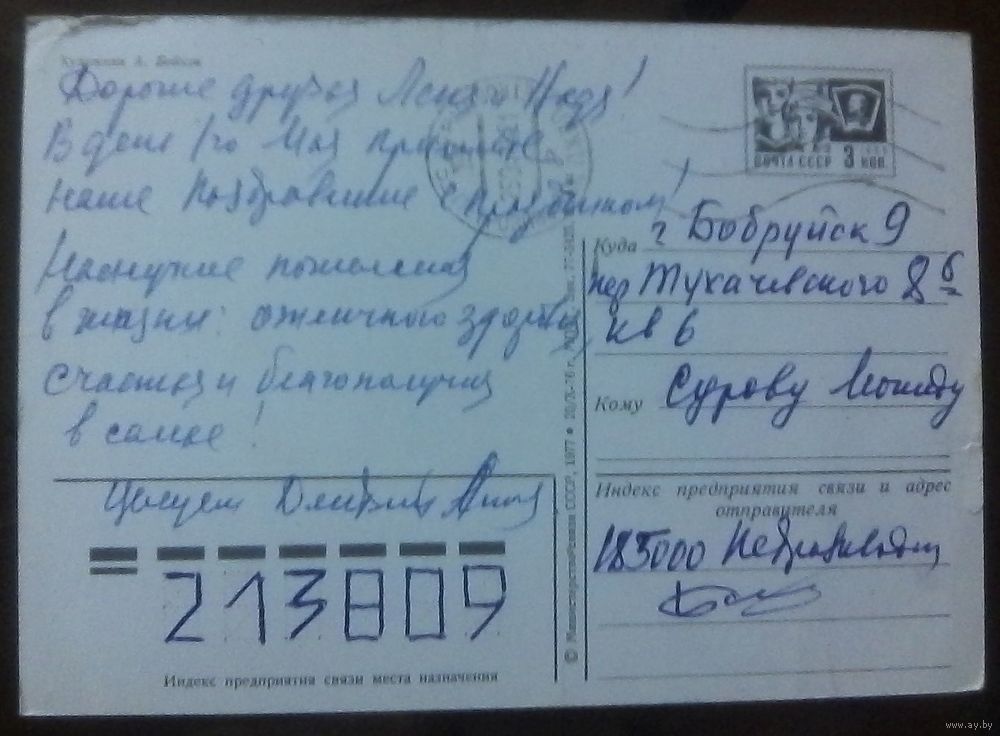 Художник А. Бойков
Дорогие друзья Леня и Надя!
В день 1го Мая примите
наше поздравление с праздником!
Наилучшие пожелания
в жизни: отличного здоровья
счастья и благополучия
в семье!
Целуем Дмитрий Анна
213809
Индекс предприятия связи места назначения
© Министерство связи СССР, 1977
ПОЧТА СССР 3 КОП
Куда г Бобруйск 9
пер Тухачевского 8 б
кв 6
Кому Сурову Леониду
Индекс предприятия связи и адрес
отправителя
185000 Петрозаводск
www.ay.by